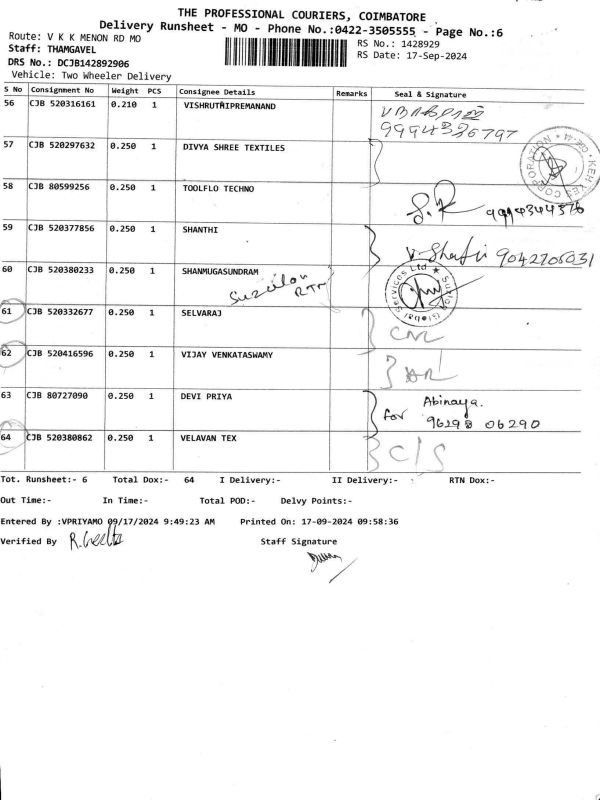 THE PROFESSIONAL COURIERS, COIMBATORE
Delivery Runsheet - MO - Phone No.:0422-3505555 - Page No.:6
Route: V K K MENON RD MO
RS No.: 1428929
Staff: THAMGAVEL
RS Date: 17-Sep-2024
DRS No.: DCJB142892906
Vehicle: Two Wheeler Delivery
S No Consignment No Weight PCS Consignee Details Remarks Seal & Signature
56 CJB 520316161 0.210 1 VISHRUTHIPREMANAND
9994326797
57 CJB 520297632 0.250 1 DIVYA SHREE TEXTILES
KEH YES CORPORATION
58 CJB 80599256 0.250 1 TOOLFLO TECHNO
9994344376
59 CJB 520377856 0.250 1 SHANTHI
9042705031
60 CJB 520380233 0.250 1 SHANMUGASUNDRAM
Suzlon Global Services Ltd
61 CJB 520332677 0.250 1 SELVARAJ
62 CJB 520416596 0.250 1 VIJAY VENKATASWAMY
63 CJB 80727090 0.250 1 DEVI PRIYA
for Abinaya.
96298 06290
64 CJB 520380862 0.250 1 VELAVAN TEX
C/S
Tot. Runsheet:- 6 Total Dox:- 64 I Delivery:- II Delivery:- RTN Dox:-
Out Time:- In Time:- Total POD:- Delvy Points:-
Entered By :VPRIYAMO 09/17/2024 9:49:23 AM Printed On: 17-09-2024 09:58:36
Verified By Staff Signature